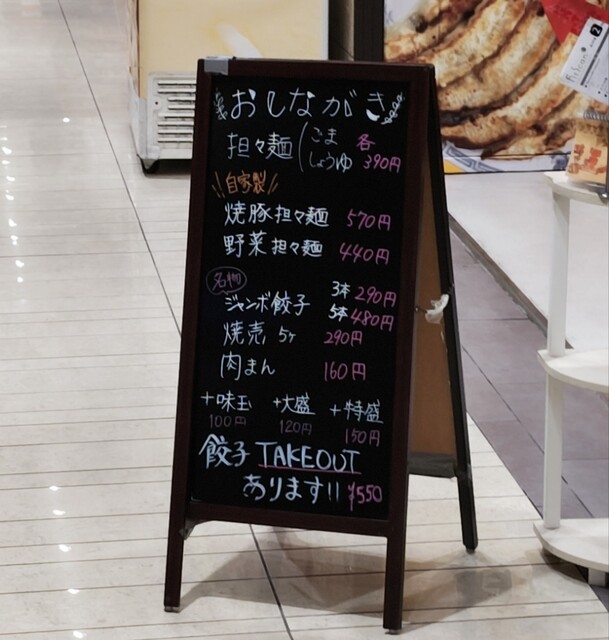 おしながき
担々麺（ごま しょうゆ 各390円
自家製
焼豚担々麺 570円
野菜担々麺 440円
名物
ジャンボ餃子 3本290円
5本480円
焼売 5ヶ 290円
肉まん 160円
+味玉 +大盛 +特盛
100円 120円 150円
餃子 TAKEOUT
あります!! ¥550